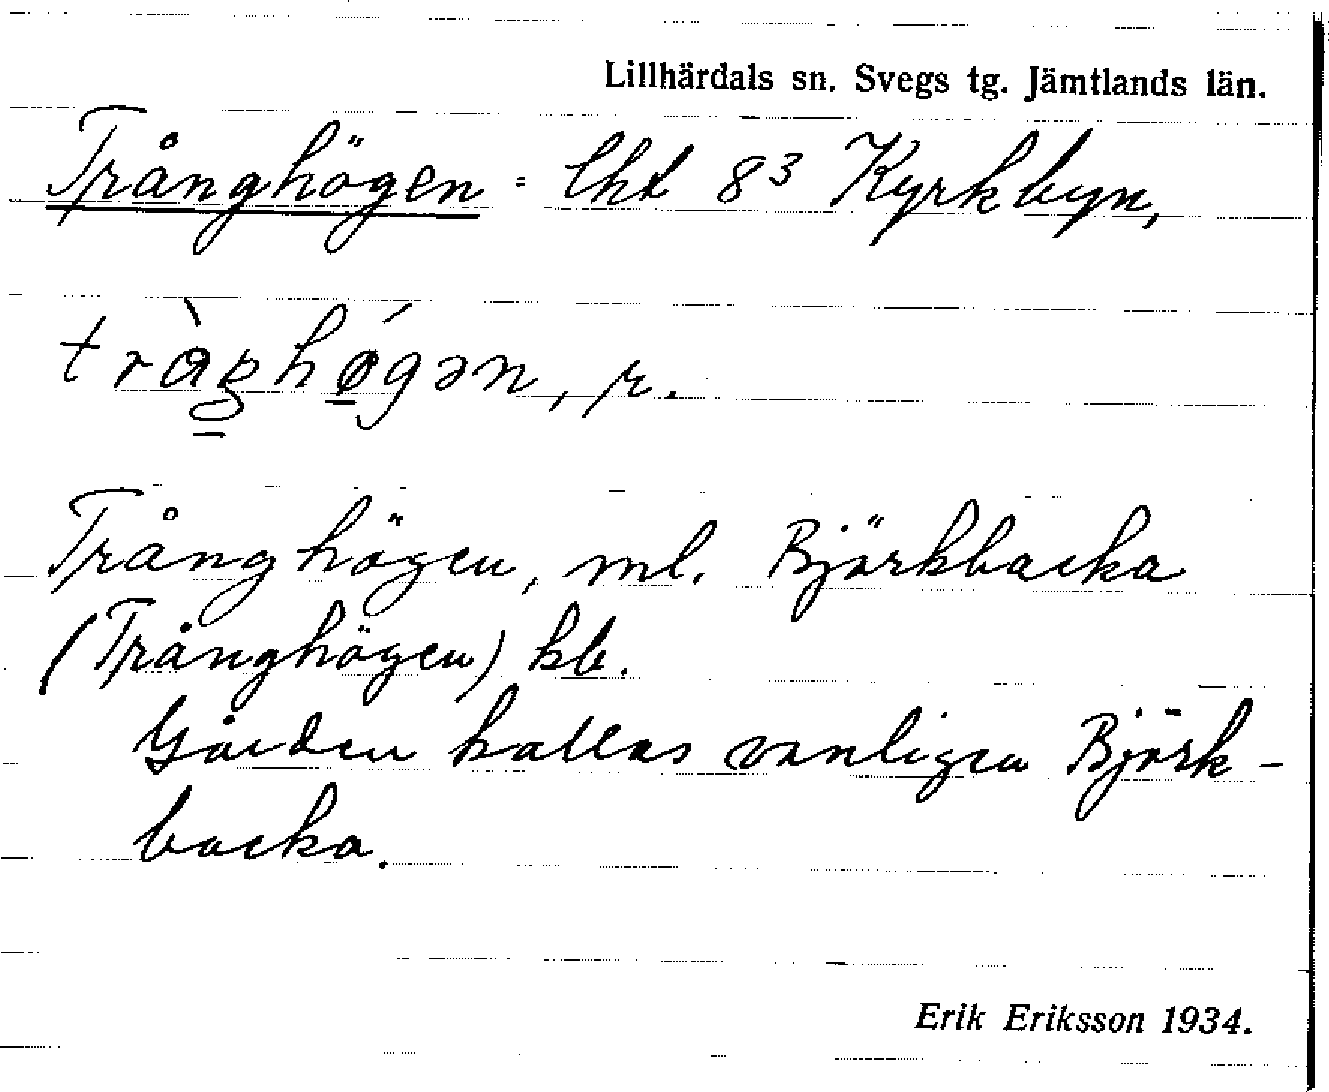 Lillhärdals sn. Svegs tg. Jämtlands län.
Trånghögen = lht 8³ Kyrkbyn,
r.
Trånghögen, ml. Björkbacka
(Trånghögen) kb.
Gården kallas vanligen Björk-
backa.
Erik Eriksson 1934.